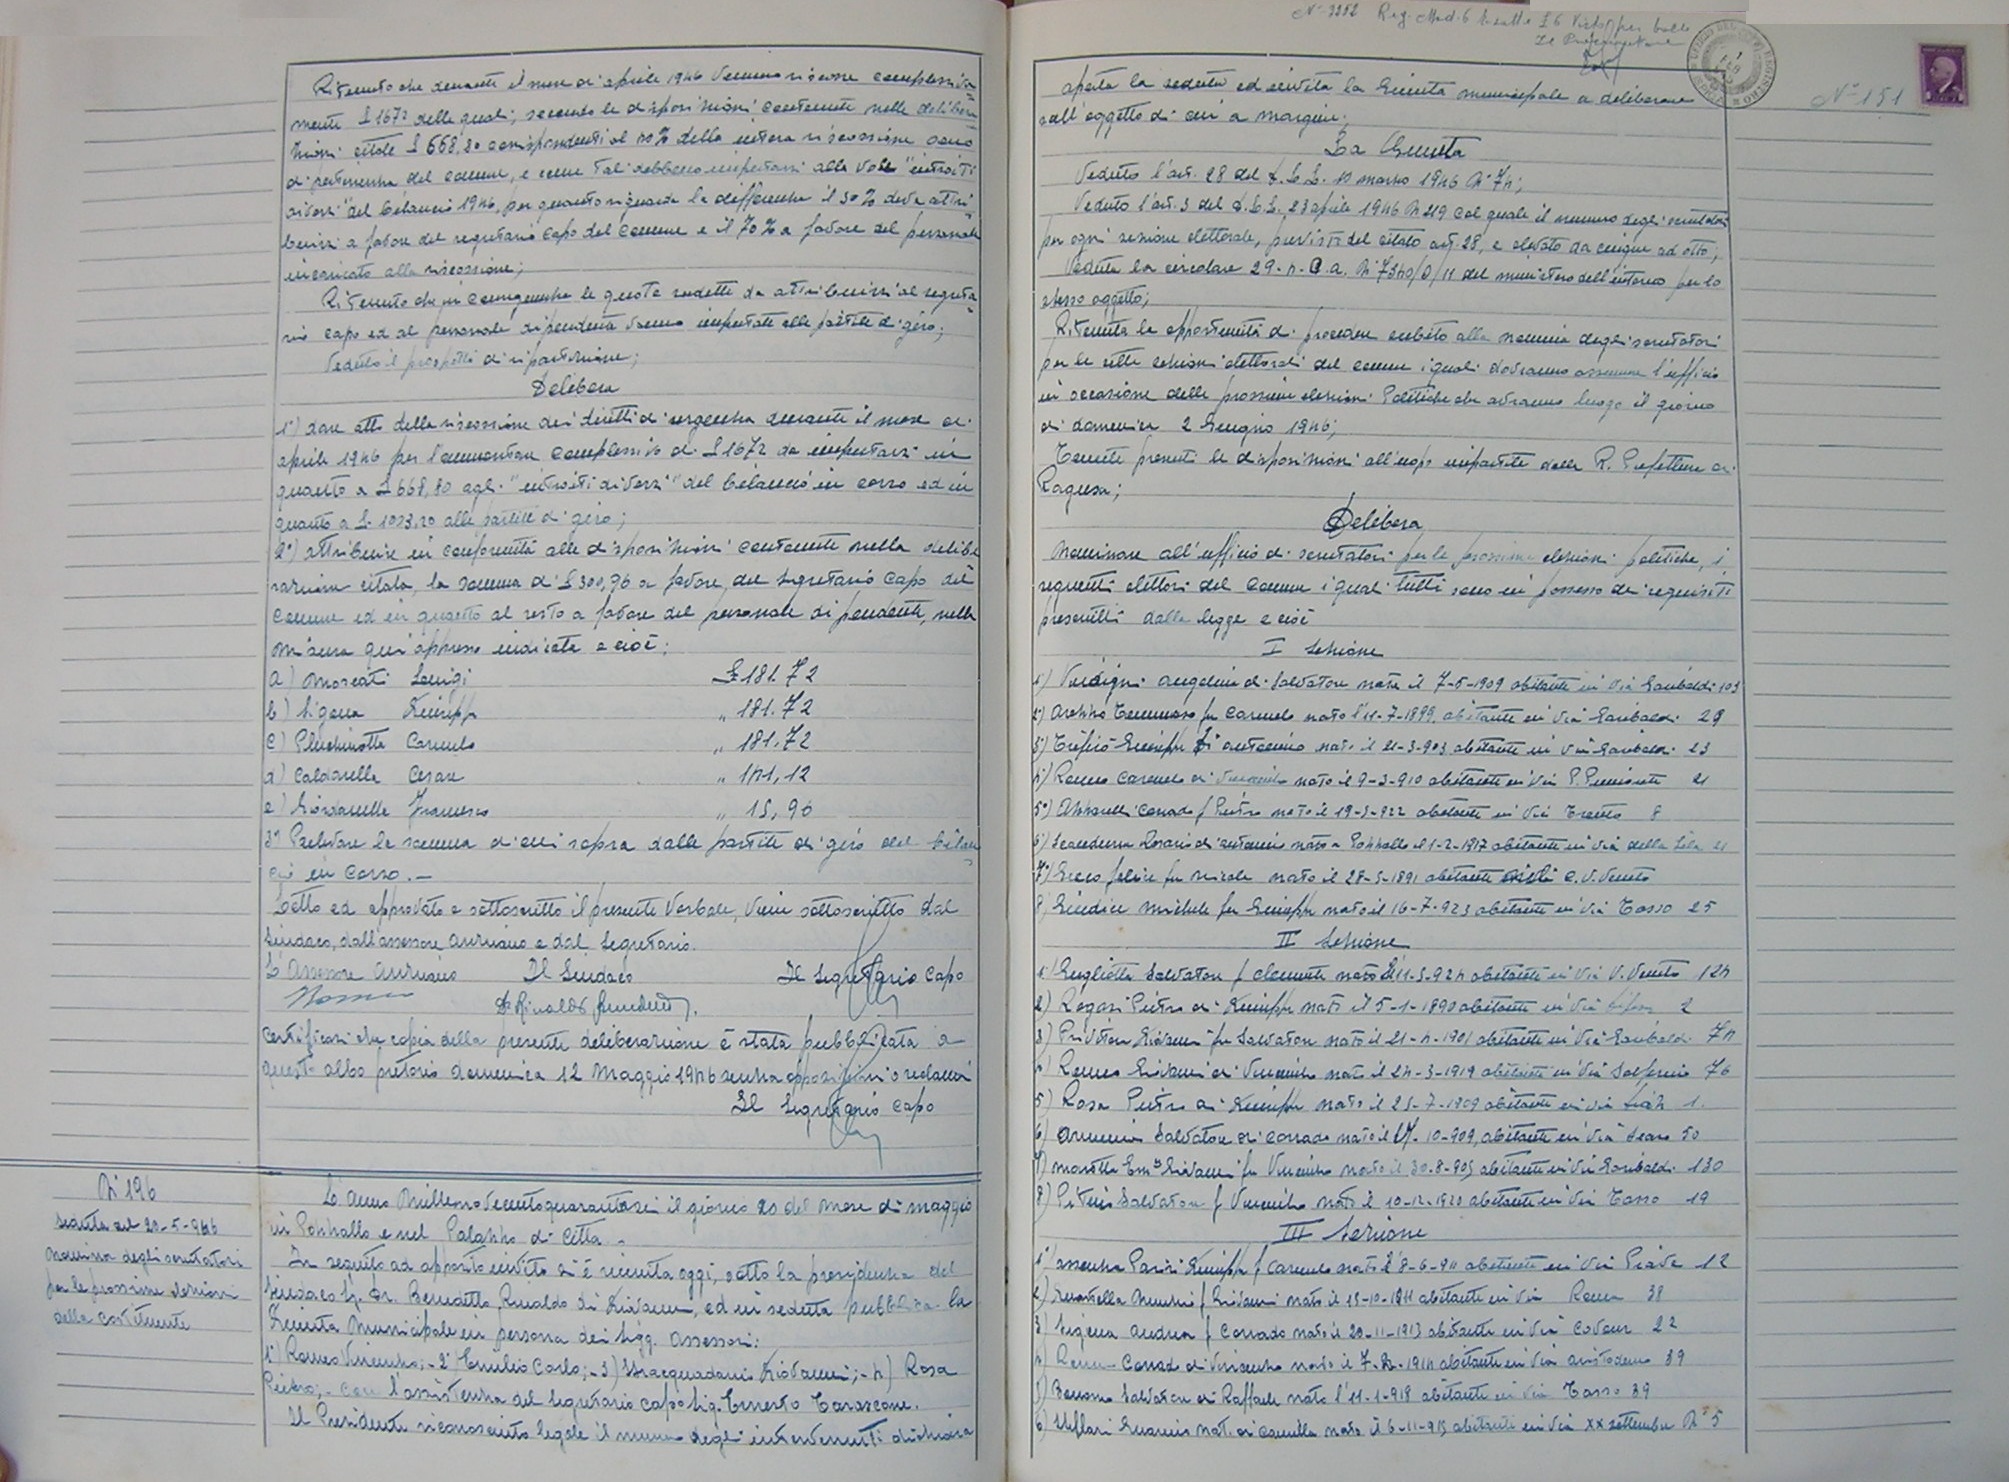 Ritenuto che durante il mese di aprile 1946 vennero riscosse complessiva=
mente £ 1672 delle quali, secondo le disposizioni contenute nella delibera
zioni citate £ 668,80 corrispondenti al 40% della intera riscossione sono
di pertenenza del comune, e come tali debbono impertarsi alla voce "introiti
diversi" del bilancio 1946, per quanto riguarda la differenza il 30% deve attri=
buirsi a favore del segretario capo del comune e il 70% a favore del personale
incaricato alla riscossione;
Ritenuto che in conseguenza le quote sudette da attribuirsi al segreta=
rio capo ed al personale dipendente vanno impertate alle partite di giro;
Veduto il prospetto di ripartizione;
Delibera
1°) dare atto della riscossione dei diritti di urgenza durante il mese di
aprile 1946 per l'ammontare complessivo di £ 1672 da impertarsi in
quanto a £ 668,80 agli "introiti diversi" del bilancio in corso ed in
quanto a £. 1003,20 alle partite di giro;
2°) attribuire in conformità alle disposizioni contenute nella delibe
razione citata, la somma di £ 300,96 a favore del segretario capo del
comune ed in quanto al resto a favore del personale dipendente, nella
misura qui appresso indicata e cioè:
a) Moscati Luigi £ 181.72
b) Sigona Giuseppe " 181.72
c) Pluchinotta Carmelo " 181.72
d) Caldarella Cesare " 141,12
e) Giordanella Francesco " 15,96
3° Prelevare la somma di cui sopra dalle partite di giro del bilan
cio in corso.—
Letto ed approvato e sottoscritto il presente verbale, viene sottoscritto dal
Sindaco, dall'assessore anziano e dal segretario.
L'Assessore anziano Il Sindaco Il Segretario Capo
Romeo Dr Rinaldo Benedetto
Certificasi che copia della presente deliberazione è stata pubblicata a
quest'albo pretorio domenica 12 Maggio 1946 senza opposizioni o reclami
Il Segretario Capo
N° 196
Seduta del 20-5-946
Nomina degli scrutatori
per le prossime elezioni
della costituente
L'anno Millenovecentoquarantasei il giorno 20 del mese di maggio
in Pozzallo e nel Palazzo di Città.
In seguito ad apposito invito si è riunita oggi, sotto la presidenza del
Sindaco Sig. Dr. Benedetto Rinaldo di Giovanni, ed in seduta pubblica la
Giunta Municipale in persona dei Sigg. Assessori:
1°) Romeo Vincenzo; - 2° Emilio Carlo; - 3) Stracquadanio Giovanni; - 4) Rosa
Pietro; - con l'assistenza del segretario capo Sig. Ernesto Tarascone.
Il Presidente riconosciuto legale il numero degli intervenuti dichiara
N° 3252 Reg. Mod. 6 £ 6 per bollo
N° 151
aperta la seduta ed invita la Giunta municipale a deliberare
sull'oggetto di cui a margine.
La Giunta
Veduto l'art. 28 del D.L.L. 10 marzo 1946 N° 74;
Veduto l'art. 3 del D.L.L. 23 aprile 1946 N 219 col quale il numero degli scrutatori
per ogni sezione elettorale, previsti del citato art. 28, è elevato da cinque ad otto;
Veduta la circolare 29-4-c.a. N° 7340/0/11 del ministero dell'interno per lo
stesso oggetto;
Ritenuta la opportunità di procedere subito alla nomina degli scrutatori
per le sette sezioni elettorali del comune i quali dovranno assumere l'ufficio
in occasione delle prossime elezioni Politiche che avranno luogo il giorno
di domenica 2 Giugno 1946;
Tenute presenti le disposizioni all'uopo impartite dalla R. Prefettura di
Ragusa;
Delibera
Nominare all'ufficio di scrutatori per le prossime elezioni politiche, i
seguenti elettori del comune i quali tutti sono in possesso dei requisiti
prescritti dalla legge e cioè
I Sezione
1°) Angelino di Salvatore nato il 7-5-1909 abitante in Via Garibaldi 103
2°) Tommaso fu Carmelo nato l'11-7-1899, abitante in Via Garibaldi 29
3°) Giuseppe di antonino nato il 21-3-903 abitante in Via Garibaldi 23
4°) Romeo Carmelo di Vincenzo nato il 9-3-910 abitante in Via 21
5°) Corrado f Pietro nato il 19-3-922 abitante in Via Trento 8
6°) Scandurra Rosario di antonio nato a Pozzallo il 1-2-1917 abitante in Via della 21
7°) Greco Felice fu Nicola nato il 28-5-1891 abitante C. V. Veneto
8) Giudice Michele fu Giuseppe nato il 16-7-923 abitante in Via Tasso 25
II Sezione
1°) Gugliotta Salvatore f Clemente nato l'11-3-924 abitante in Via V. Veneto 124
2) Rogasi Pietro di Giuseppe nato il 5-1-1890 abitante in Via 2
3) Privitera Giovanni fu Salvatore nato il 21-4-1901 abitante in Via Garibaldi 74
4) Romeo Giovanni di Vincenzo nato il 24-3-1919 abitante in Via Solferino 76
5) Rosa Pietro di Giuseppe nato il 25-7-1909 abitante in Via 1.
6) Salvatore di Corrado nato il 17-10-909, abitante in Via 50
7) Morotta Em. Giovanni fu Vincenzo nato il 30-8-905 abitante in Via Garibaldi 130
8) Salvatore f Vincenzo nato il 10-12-1920 abitante in Via Tasso 19
III Sezione
1°) Assenza Parisi Giuseppe f Carmelo nato l'8-6-911 abitante in Via Piave 12
2) f Giovanni nato il 15-10-1911 abitante in Via Roma 38
3) Sigona Andrea f Corrado nato il 20-11-1913 abitante in Via Cavour 22
4) Corrado di Vincenzo nato il 1914 abitante in Via aristodemo 39
5) Salvatore di Raffaele nato l'11-1-918 abitante in Via Tasso 39
6) nat. di Camilla nato il 6-11-913 abitante in Via XX settembre N° 5